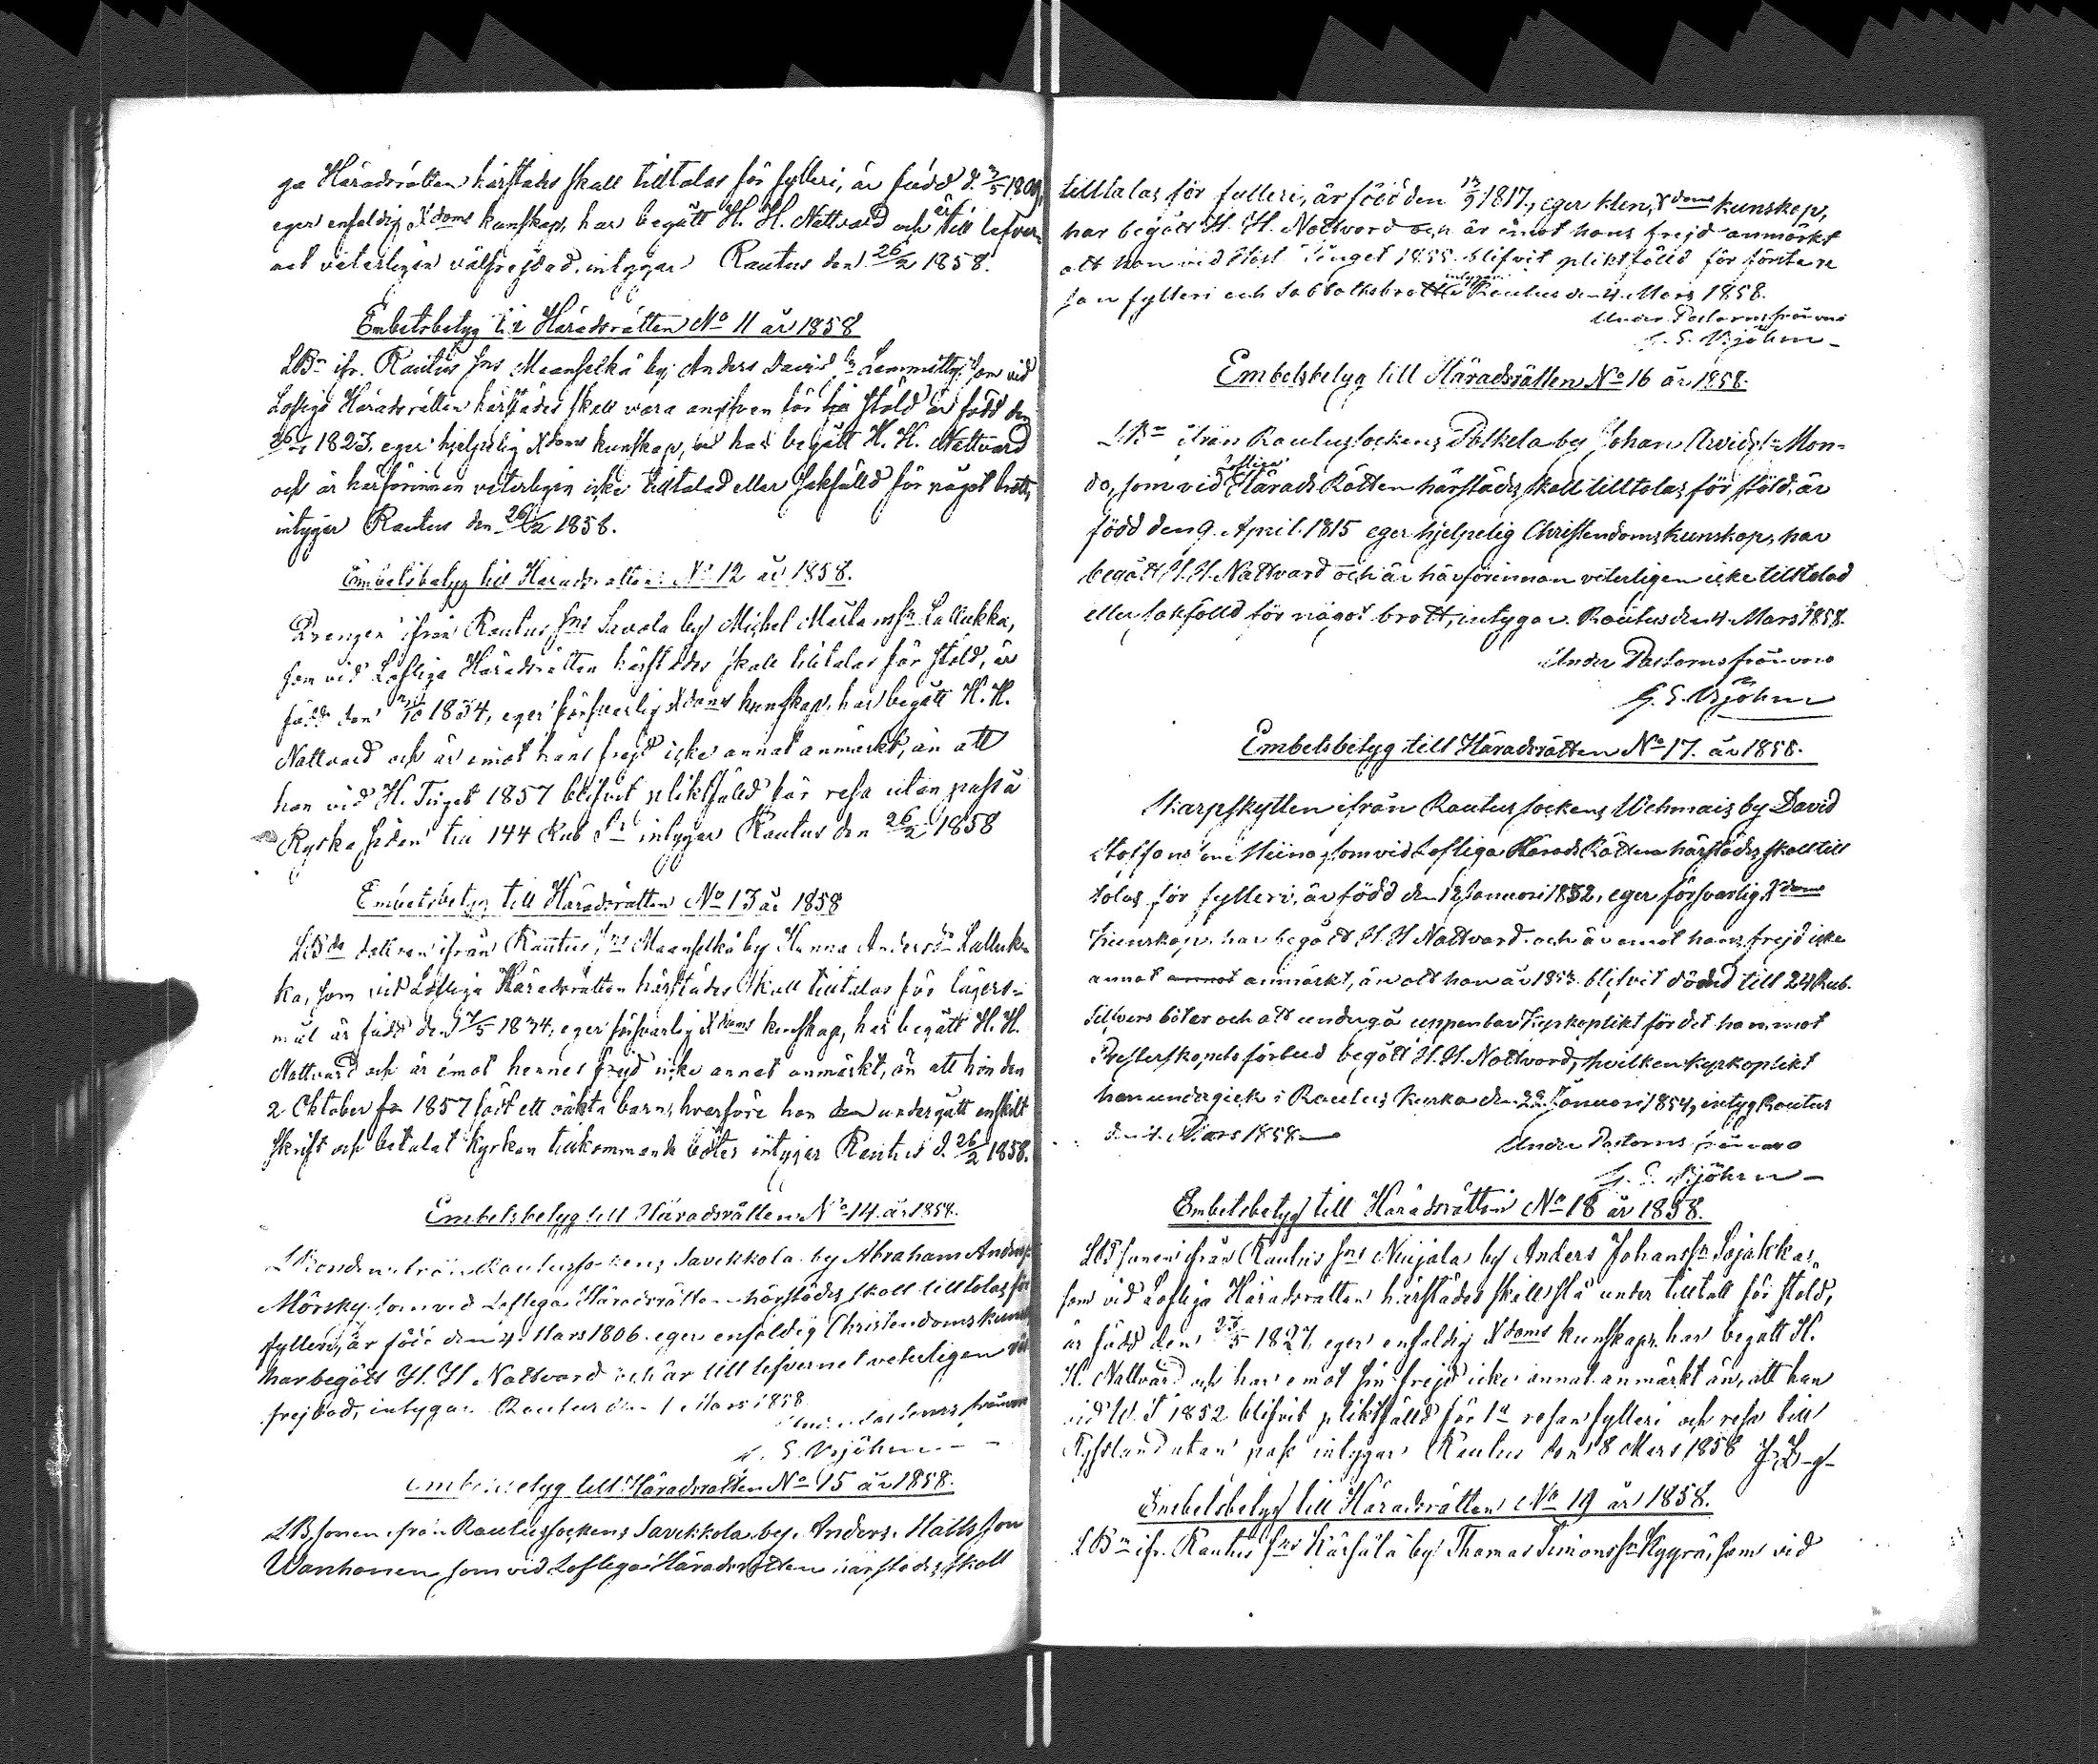 ga Häradsrätten härstädes skall tilltalas för fylleri, är född d. 3/5 1809,
eger enfaldig Xdoms kunskap, har begått H. H. Nattvard och är till lefver-
net veterligen välfrejdad, intygar Rautus den 26/2 1858.
Embetsbetyg till Häradsrätten No 11 år 1858
LBn ifr. Rautus sns Maanselkä by Anders Davids sn Lammitty, som vid
Lofliga Häradsrätten härstädes skall vara angifven för stöld är född den
26/ 1823, eger hjelpelig Xdoms kunskap, har begått H. H. Nattvard
och är härförinnan veterligen icke tilltalad eller sakfälld för något brott,
intygar Rautus den 26/2 1858.
Embetsbetyg till Häradsrätten No 12 år 1858.
Drengen ifrån Rautus sns Savola by Michel Matsson Lallukka,
som vid Lofliga Häradsrätten härstädes skall tilltalas för stöld, är
född den /10 1834, eger försvarlig Xdoms kunskap, har begått H. H.
Nattvard och är emot hans frejd icke annat anmärkt, än att
han vid H. Tinget 1857 blifvit pliktfälld för resa utan pass å
Ryska sidan till 144 Rub Sr intygar Rautus den 26/2 1858
Embetsbetyg till Häradsrätten No 13 år 1858
LBde dottren ifrån Rautus sns Maanselkä by Hanna Andersdr Lalluk-
ka, som vid Lofliga Häradsrätten härstädes skall tilltalas för lägers-
mål är född den 7/5 1834, eger försvarlig Xdoms kunskap, har begått H. H.
Nattvard och är emot hennes frejd icke annat anmärkt, än att hon den
2 Oktober 1857 födt ett oäkta barn, hvarföre hon undergått enskilt
skrift och betalat kyrkan tillkommande böter intygar Rautus d. 26/2 1858.
Embetsbetyg till Häradsrätten No 14 år 1858.
LBonden ifrån Rautus sockens Savikkola by Abraham Anders
Mörsky, som vid Lofliga Häradsrätten härstädes skall tilltalas för
fylleri, är född den 4 Mars 1806. eger enfaldig Christendomskun
har begått H. H Nattvard och är till lefvernet veterligen väl
frejdad, intygar. Rautus den 1 Mars 1858
Under Pastorns frånvaro
G. E. Björhm
Embetsbetyg till Häradsrätten No 15 år 1858.
LBsonen ifrån Rautus sockens Savikkola by, Anders Matsson
Wanhanen som vid Lofliga Häradsrätten härstädes skall
tilltalas för fylleri, är född den 13/9 1817, eger klen Xdoms kunskap,
har begått H. H. Nattvard och är emot hans frejd anmärkt
att han vid Höst Tinget 1855 blifvit pliktfälld för första re
san fylleri och sabbatsbrott intygar Rautus den 4 Mars 1858.
Under Pastorns frånvaro
G. E. Björhm
Embetsbetyg till Häradsrätten No 16 år 1858.
LBn ifrån Rautus sockens Palkela by Johan Arvidsson Mon-
do, som vid Lofliga Härads Rätten härstädes skall tilltalas för stöld, är
född den 9. April 1815 eger hjelpelig Christendomskunskap, har
begått H. H. Nattvard och är härförinnan veterligen icke tilltalad
eller sakfälld för något brott, intygar. Rautus den 4 Mars 1858.
Under Pastorns frånvaro
G. E. Björhm
Embetsbetyg till Häradsrätten No 17. år 1858.
Skarpskytten ifrån Rautus sockens Wehmais by David
Staffansson Hiina, som vid Lofliga Härads Rätten härstädes skall till
talas för fylleri, är född den 12 Januari 1832, eger försvarlig Xdoms
kunskap. har begått H. H Nattvard och är emot hans frejd icke
annat annat anmärkt, än att han år 1853 blifvit dömd till 24 Rub.
Silfvers böter och att undergå uppenbar kyrkoplikt för det han, mot
Presterskapets förbud begått H. H. Nattvard, hvilken kyrkoplikt
han undergick i Rautus kyrka den 22 Januari 1854, intyg Rautus
den 4. Mars 1858
Under Pastorns frånvaro
G. E. Björhm
Embetsbetyg till Häradsrätten No 18 år 1858.
LBsonen ifrån Rautus sns Nuijala by Anders Johansson Sojakka,
som vid Lofliga Häradsrätten härstädes skall stå under tilltal för stöld,
är född den 23/5 1827, eger enfaldig Xdoms kunskap, har begått H.
H. Nattvard och har emot sin frejd icke annat anmärkt än, att han
vid W. T 1852 blifvit pliktfälld för 1a resan fylleri och resa till
Ryssland utan pass intygar Rautus den 8 Mars 1858
Embetsbetyg till Häradsrätten No 19 år 1858.
LBn ifr. Rautus sns Kärsälä by Thomas Simonsson Kyyrä, som vid